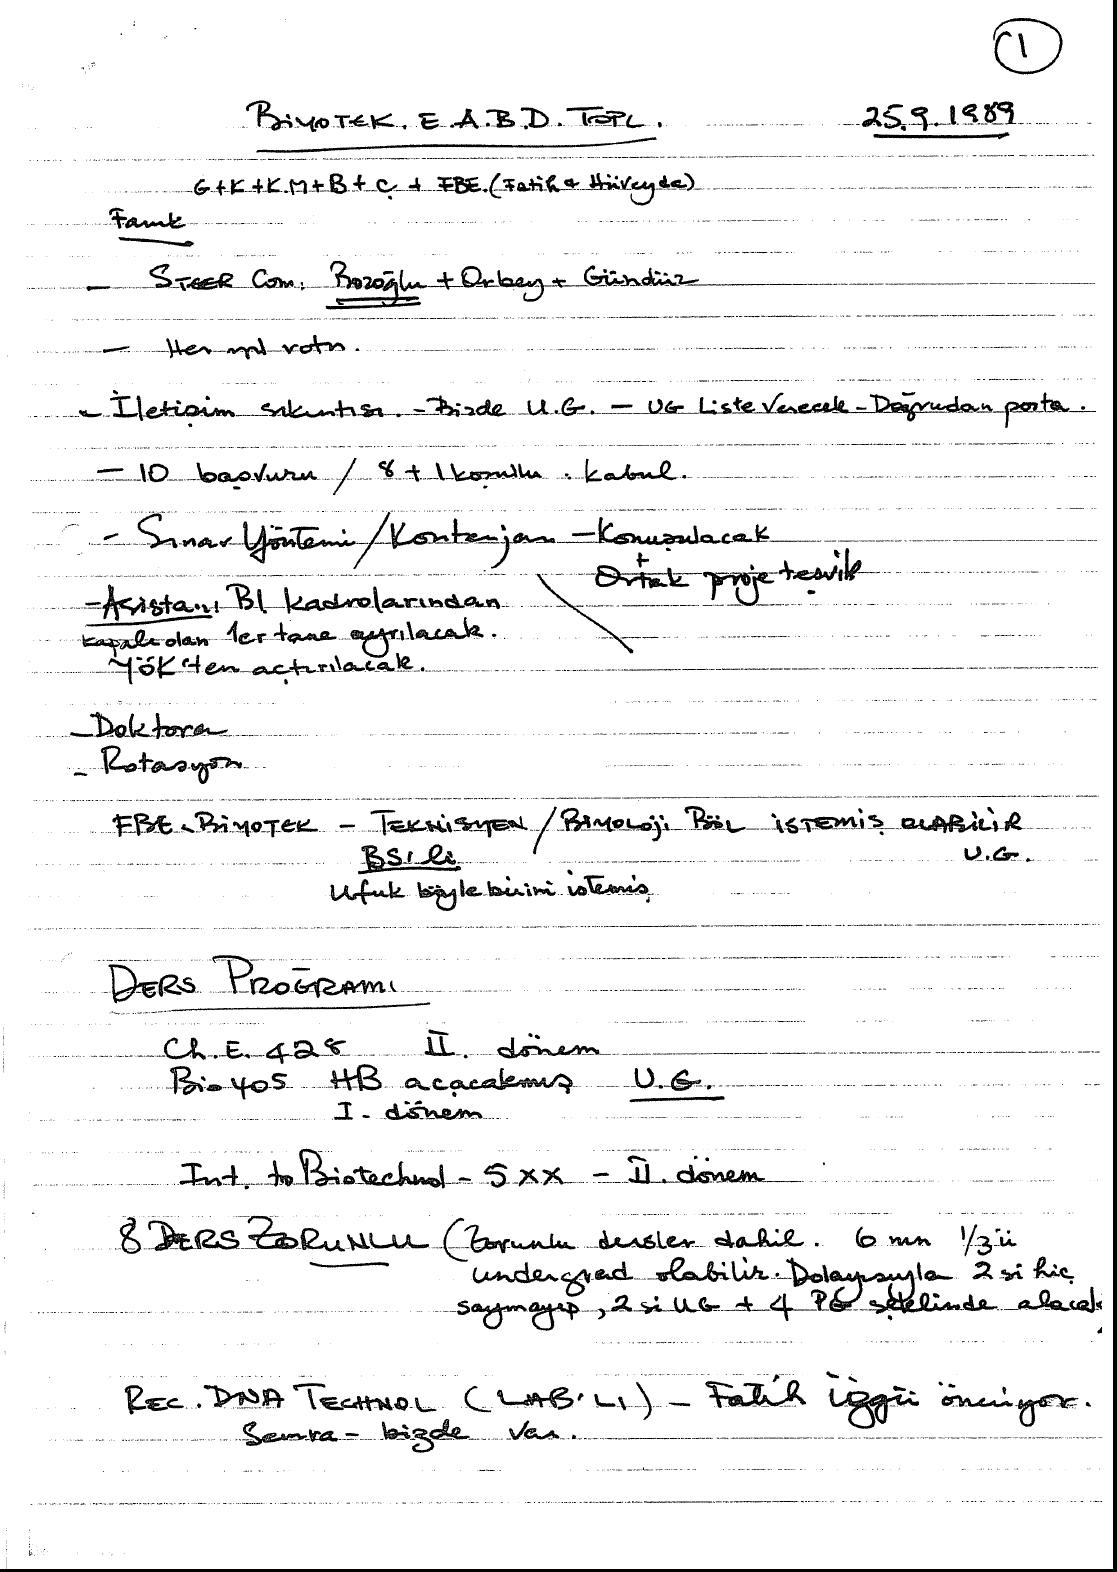 1
BİYOTEK. E.A.B.D. TOPL. 25.9.1989
G+K+K.M+B+Ç + FBE. (Fatih + Hüveyda)
Faruk
- STEER Com. Bozoğlu + Orbey + Gündüz
- Her yıl rotn.
- İletişim sıkıntısı. - Bizde U.G. - UG Liste verecek - Doğrudan posta.
- 10 başvuru / 8 + 1 koşullu. kabul.
- Sınav Yöntemi / Kontenjan - Konuşulacak
+
Ortak proje teşvik
- Asistanı Bl kadrolarından
kapalı olan 1er tane ayrılacak.
YÖK'ten açtırılacak.
- Doktora
- Rotasyon
FBE. BİYOTEK - TEKNİSYEN / BİYOLOJİ BÖL İSTEMİŞ OLABİLİR
BS'li U.G.
Ufuk böyle birini istemiş
DERS PROĞRAMI
Ch.E. 428 II. dönem
Bio 405 HB açacakmış U.G.
I. dönem
Int. to Biotechnol - 5XX - II. dönem
8 DERS ZORUNLU (Zorunlu dersler dahil. 6 nın 1/3ü
undergrad olabilir. Dolayısıyla 2 si hiç
saymayıp, 2 si UG + 4 PG şeklinde alacak
REC. DNA TECHNOL (LAB'LI) - Fatih İzgü öneriyor.
Semra - bizde var.